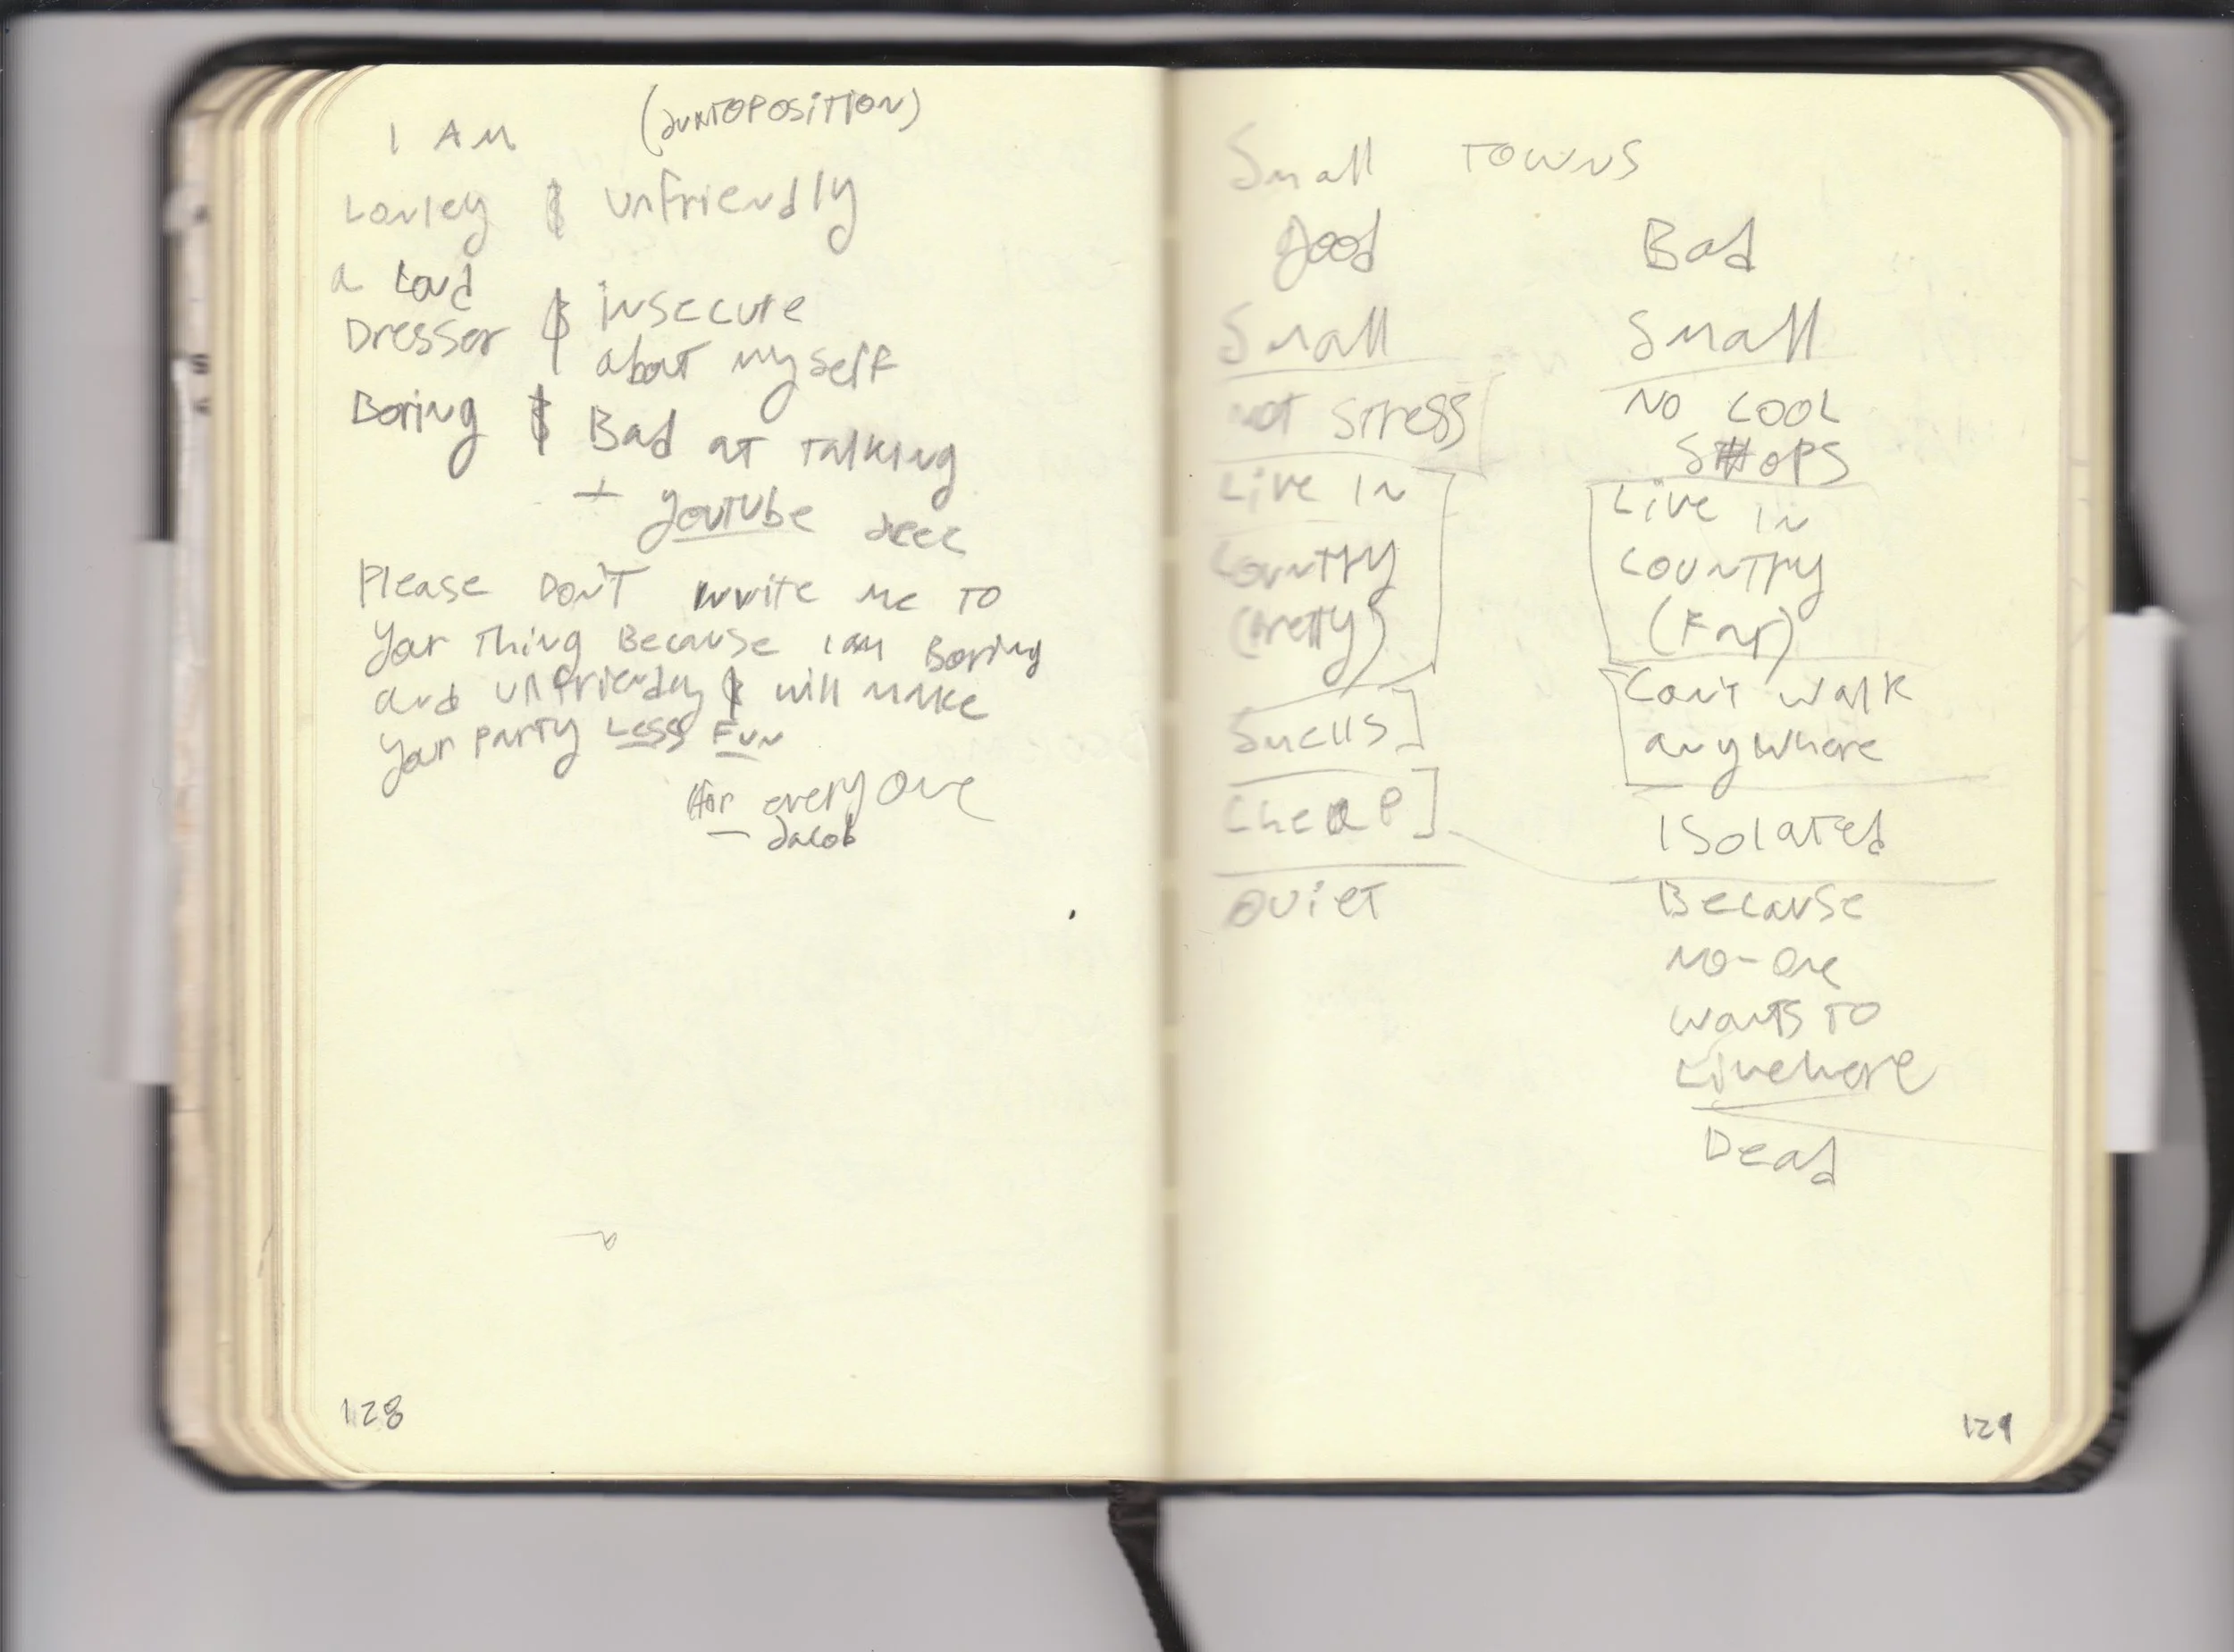 I AM (JUXTOPOSITION)
Lonley & unfriendly
a Loud
Dresser & insecure
about myself
Boring & Bad at talking
+ youtube
Please Don't invite me to
your thing Because I am Boring
and unfriendly & will make
your party Less Fun
for everyone
— Jacob
128
Small TOWNS
good
Small
not stress
Live in
country
(Pretty)
Smells
cheap
Quiet
Bad
Small
No cool
SHOPS
Live in
country
(Far)
Can't walk
anywhere
Isolated
Because
no-one
wants to
Live here
Dead
129